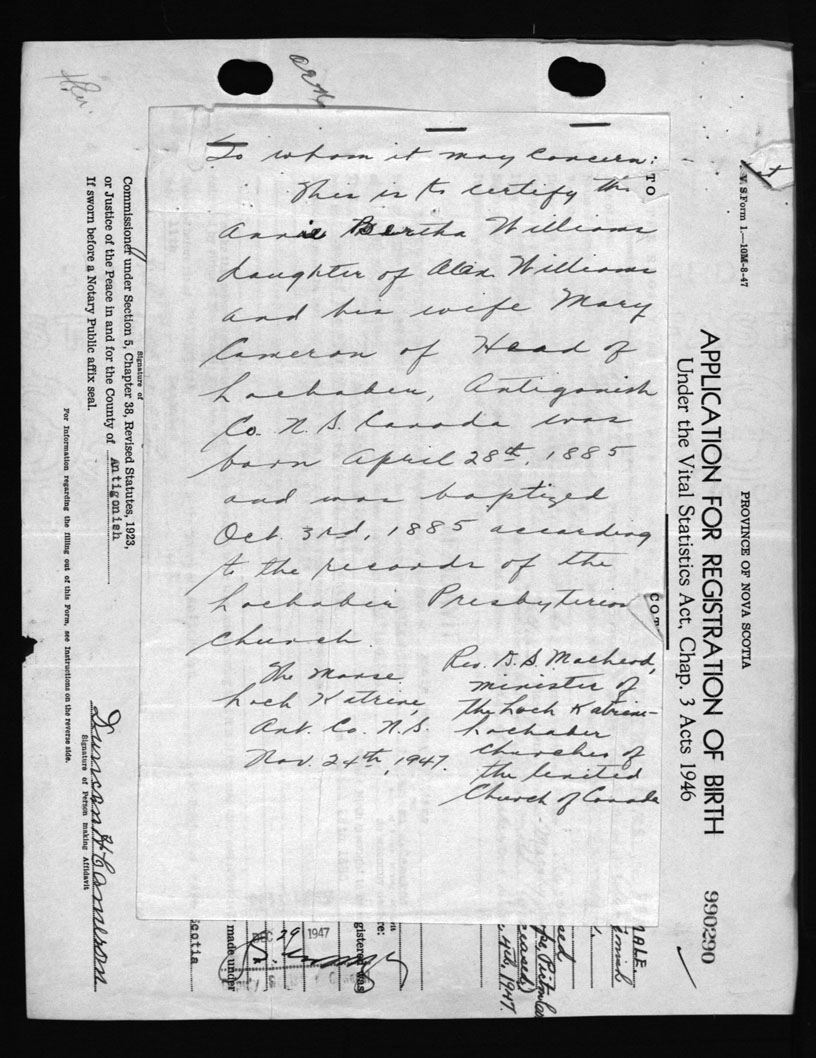 To whom it may Concern:
This is to certify tha
Annie Bertha Williams
daughter of Alex. Williams
and his wife Mary
Cameron of Head of
Lochaber, Antigonish
Co. N. S. Canada was
born April 28th, 1885
and was baptized
Oct. 3rd, 1885 according
to the records of the
Lochaber Presbyterian
Church.
The Manse,
Loch Katrine,
Ant. Co. N.S.
Nov. 24th, 1947.
Rev. D. S. MacLeod,
minister of
the Loch Katrine-
Lochaber
Churches of
the United
Church of Canada
V. S. Form 1.—10M-8-47
PROVINCE OF NOVA SCOTIA
APPLICATION FOR REGISTRATION OF BIRTH
Under the Vital Statistics Act, Chap. 3 Acts 1946
990290
TO
COT
MALE.
ased
ceased)
4th, 1947.
gistered was
re:
29 1947
made under
Scotia
Signature of
Commissioner under Section 5, Chapter 38, Revised Statutes, 1923,
or Justice of the Peace in and for the County of Antigonish
If sworn before a Notary Public affix seal.
Duncan H Cameron
Signature of Person making Affidavit
For Information regarding the filling out of this Form, see Instructions on the reverse side.